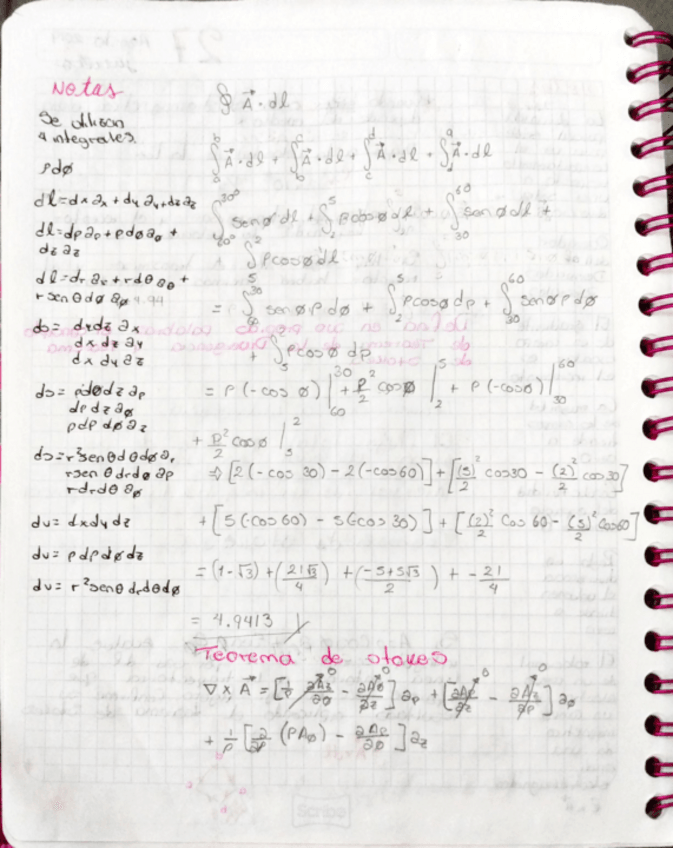 Notas
Se utilizan
4 integrales.
ρdø
dl=dx ax + dy ay + dz az
dl=dρ aρ + ρdø aø +
dz az
dl=dr ar + rdθ aθ +
r sen θ dø aø
ds= dydz ax
dx dz ay
dx dy az
ds= ρdødz aρ
dρ dz aø
ρdρ dø az
ds=r²senθ dθdø ar
rsen θ drdø aθ
rdrdθ aø
dv= dxdy dz
dv= ρdρdødz
dv= r²senθ drdθdø
∮ A⃗ · dl
∫ₐᵇ A⃗ · dl + ∫_b^c A⃗ · dl + ∫_c^d A⃗ · dl + ∫_d^a A⃗ · dl
∫₆₀³⁰ senø dl + ∫₂⁵ ρcosø dl + ∫₃₀⁶⁰ senø dl +
∫₅² ρcosø dl
= ∫₆₀³⁰ senø ρ dø + ∫₂⁵ ρcosø dρ + ∫₃₀⁶⁰ senø ρ dø
+ ∫₅² ρcosø dρ
= ρ (-cos ø) |₆₀³⁰ + ρ²/2 cosø |₂⁵ + ρ (-cosø) |₃₀⁶⁰
+ ρ²/2 cosø |₅²
⇒ [2 (-cos 30) - 2 (-cos60)] + [(5)²/2 cos30 - (2)²/2 cos30]
+ [5 (-cos60) - 5(-cos 30)] + [(2)²/2 Cos 60 - (5)²/2 Cos60]
= (1-√3) + (21√3/4) + (-5+5√3/2) + -21/4
= 4.9413
Teorema de stokes
∇ x A⃗ = [1/ρ ∂Az/∂ø - ∂Aø/∂z] aρ + [∂Aρ/∂z - ∂Az/∂ρ] aø
+ 1/ρ [∂/∂ρ (ρAø) - ∂Aρ/∂ø] az
Scribe